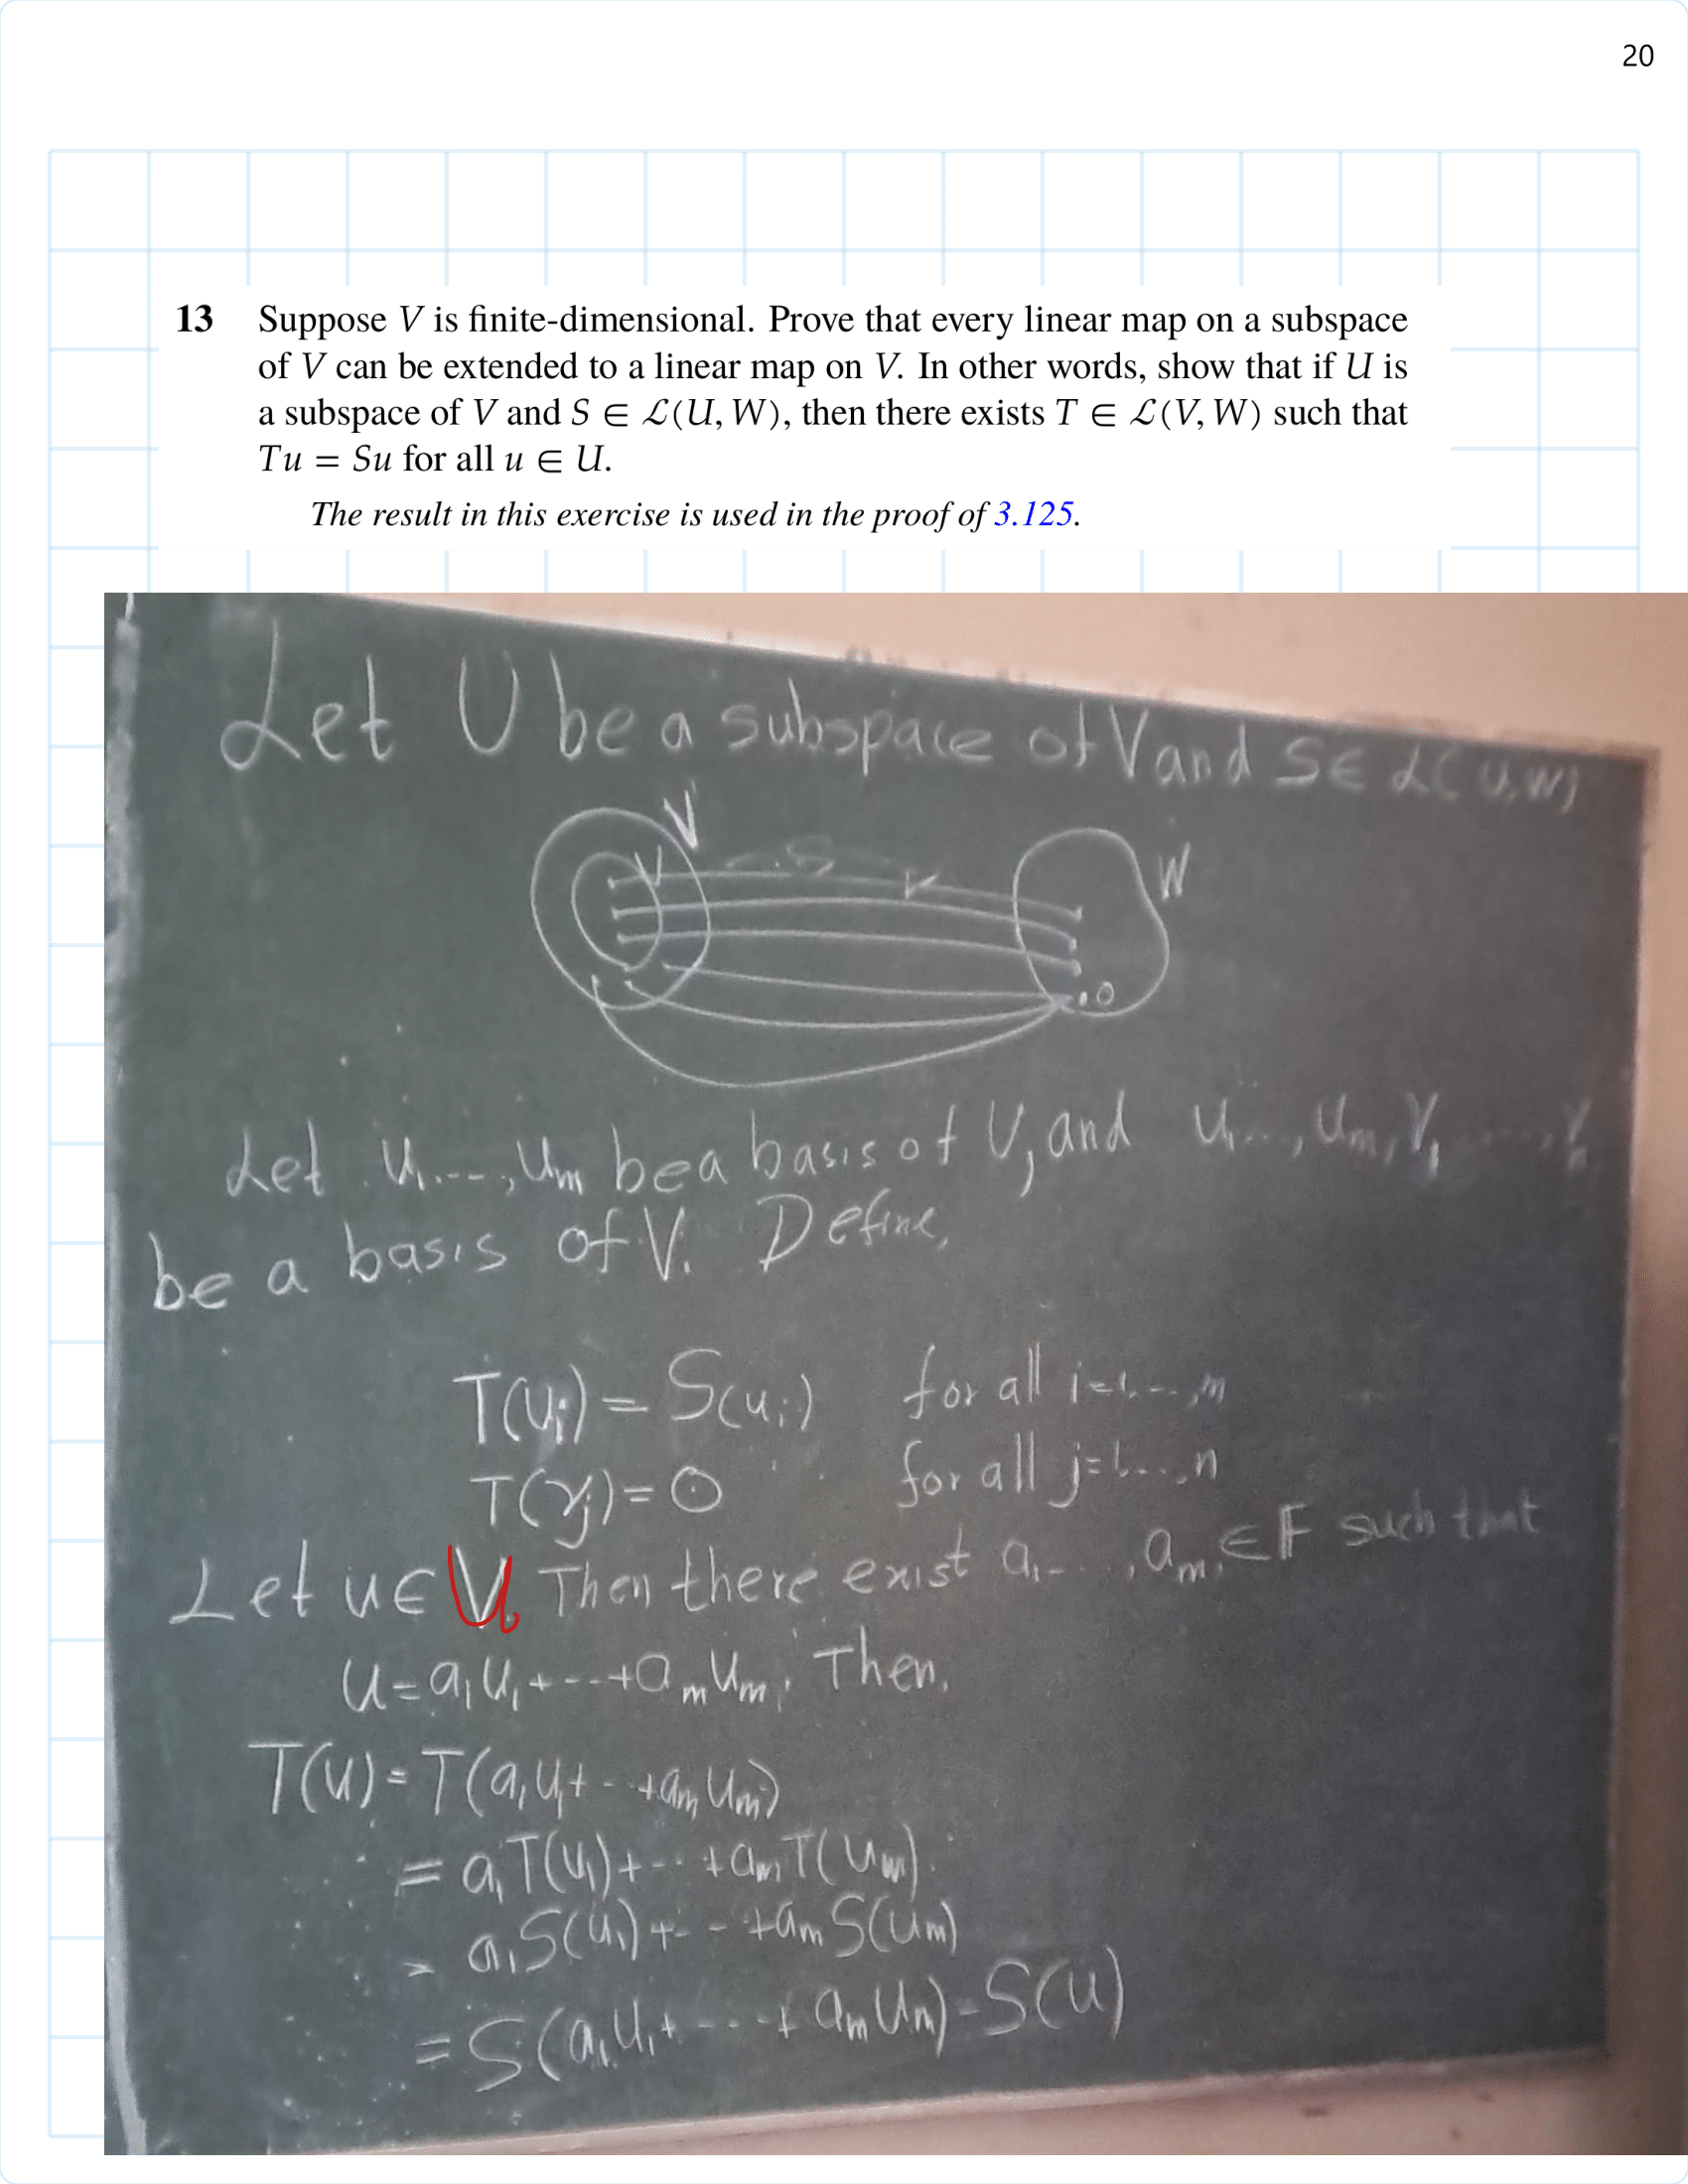 20
13 Suppose V is finite-dimensional. Prove that every linear map on a subspace
of V can be extended to a linear map on V. In other words, show that if U is
a subspace of V and S ∈ ℒ(U, W), then there exists T ∈ ℒ(V, W) such that
Tu = Su for all u ∈ U.
The result in this exercise is used in the proof of 3.125.
Let U be a subspace of V and S ∈ ℒ(U,W)
V
U S W
.0
Let u₁,...,uₘ be a basis of U, and u₁...,uₘ,v₁,...,vₙ
be a basis of V. Define,
T(uᵢ) = S(uᵢ) for all i=1,...,m
T(vⱼ) = 0 for all j=1,...,n
Let u ∈ U. Then there exist a₁,...,aₘ ∈ F such that
u = a₁u₁+---+aₘuₘ. Then,
T(u) = T(a₁u₁+--+aₘuₘ)
= a₁T(u₁)+--+aₘT(uₘ).
= a₁S(u₁)+--+aₘS(uₘ)
= S(a₁u₁+---+aₘuₘ) = S(u)